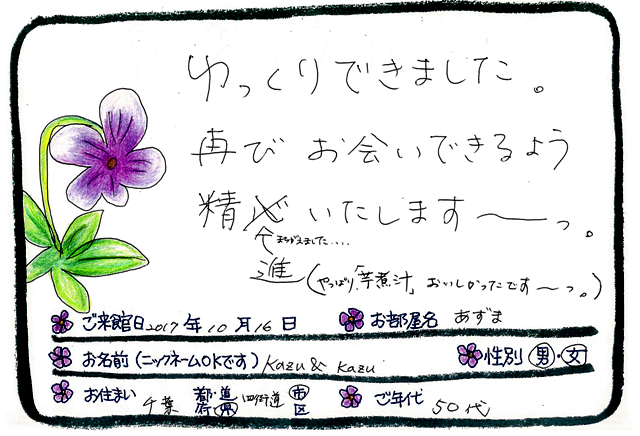 ゆっくりできました。
再びお会いできるよう
精心いたします〜っ。
まちがえました....
進(やっぱり、「芋煮汁」おいしかったです〜っ。)
ご来館日 2017年10月16日 お部屋名 あずま
お名前(ニックネームOKです) Kazu & Kazu 性別 男・女
お住まい 千葉 都・道 府・県 四街道 市 区 ご年代 50代